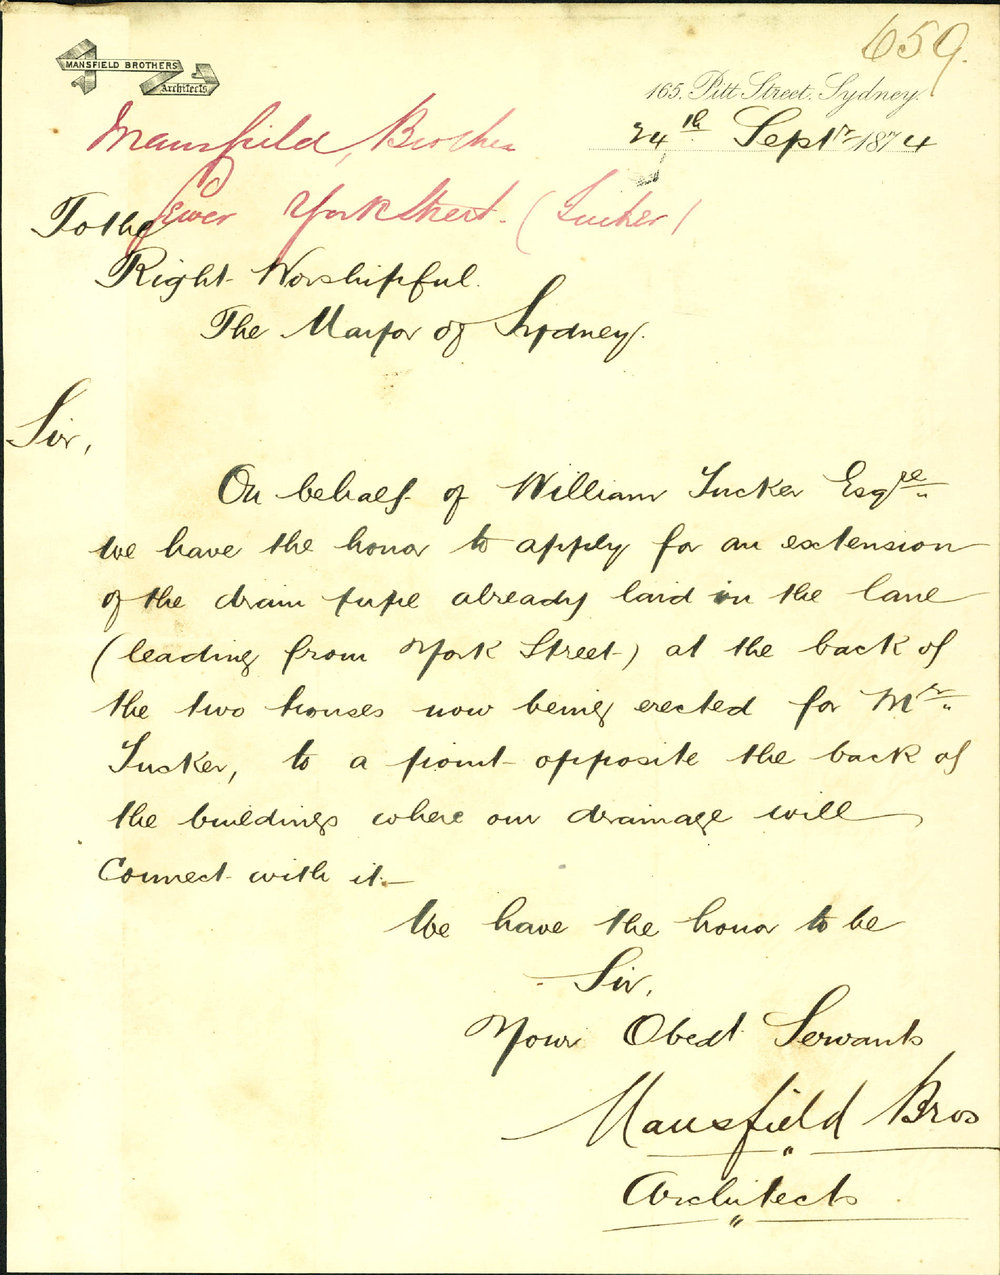 659.
MANSFIELD BROTHERS
Architects
165. Pitt Street. Sydney.
24th Septr 1874
Mansfield, Brothers
Sewer York Street. (Tucker)
To the
Right Worshipful.
The Mayor of Sydney.
Sir,
On behalf of William Tucker Esqre
we have the honor to apply for an extension
of the drain pipe already laid in the lane
(leading from York Street) at the back of
the two houses now being erected for Mr
Tucker, to a point opposite the back of
the buildings where our drainage will
Connect with it.—
We have the honor to be
Sir,
Your Obedt Servants
Mansfield Bros
Architects